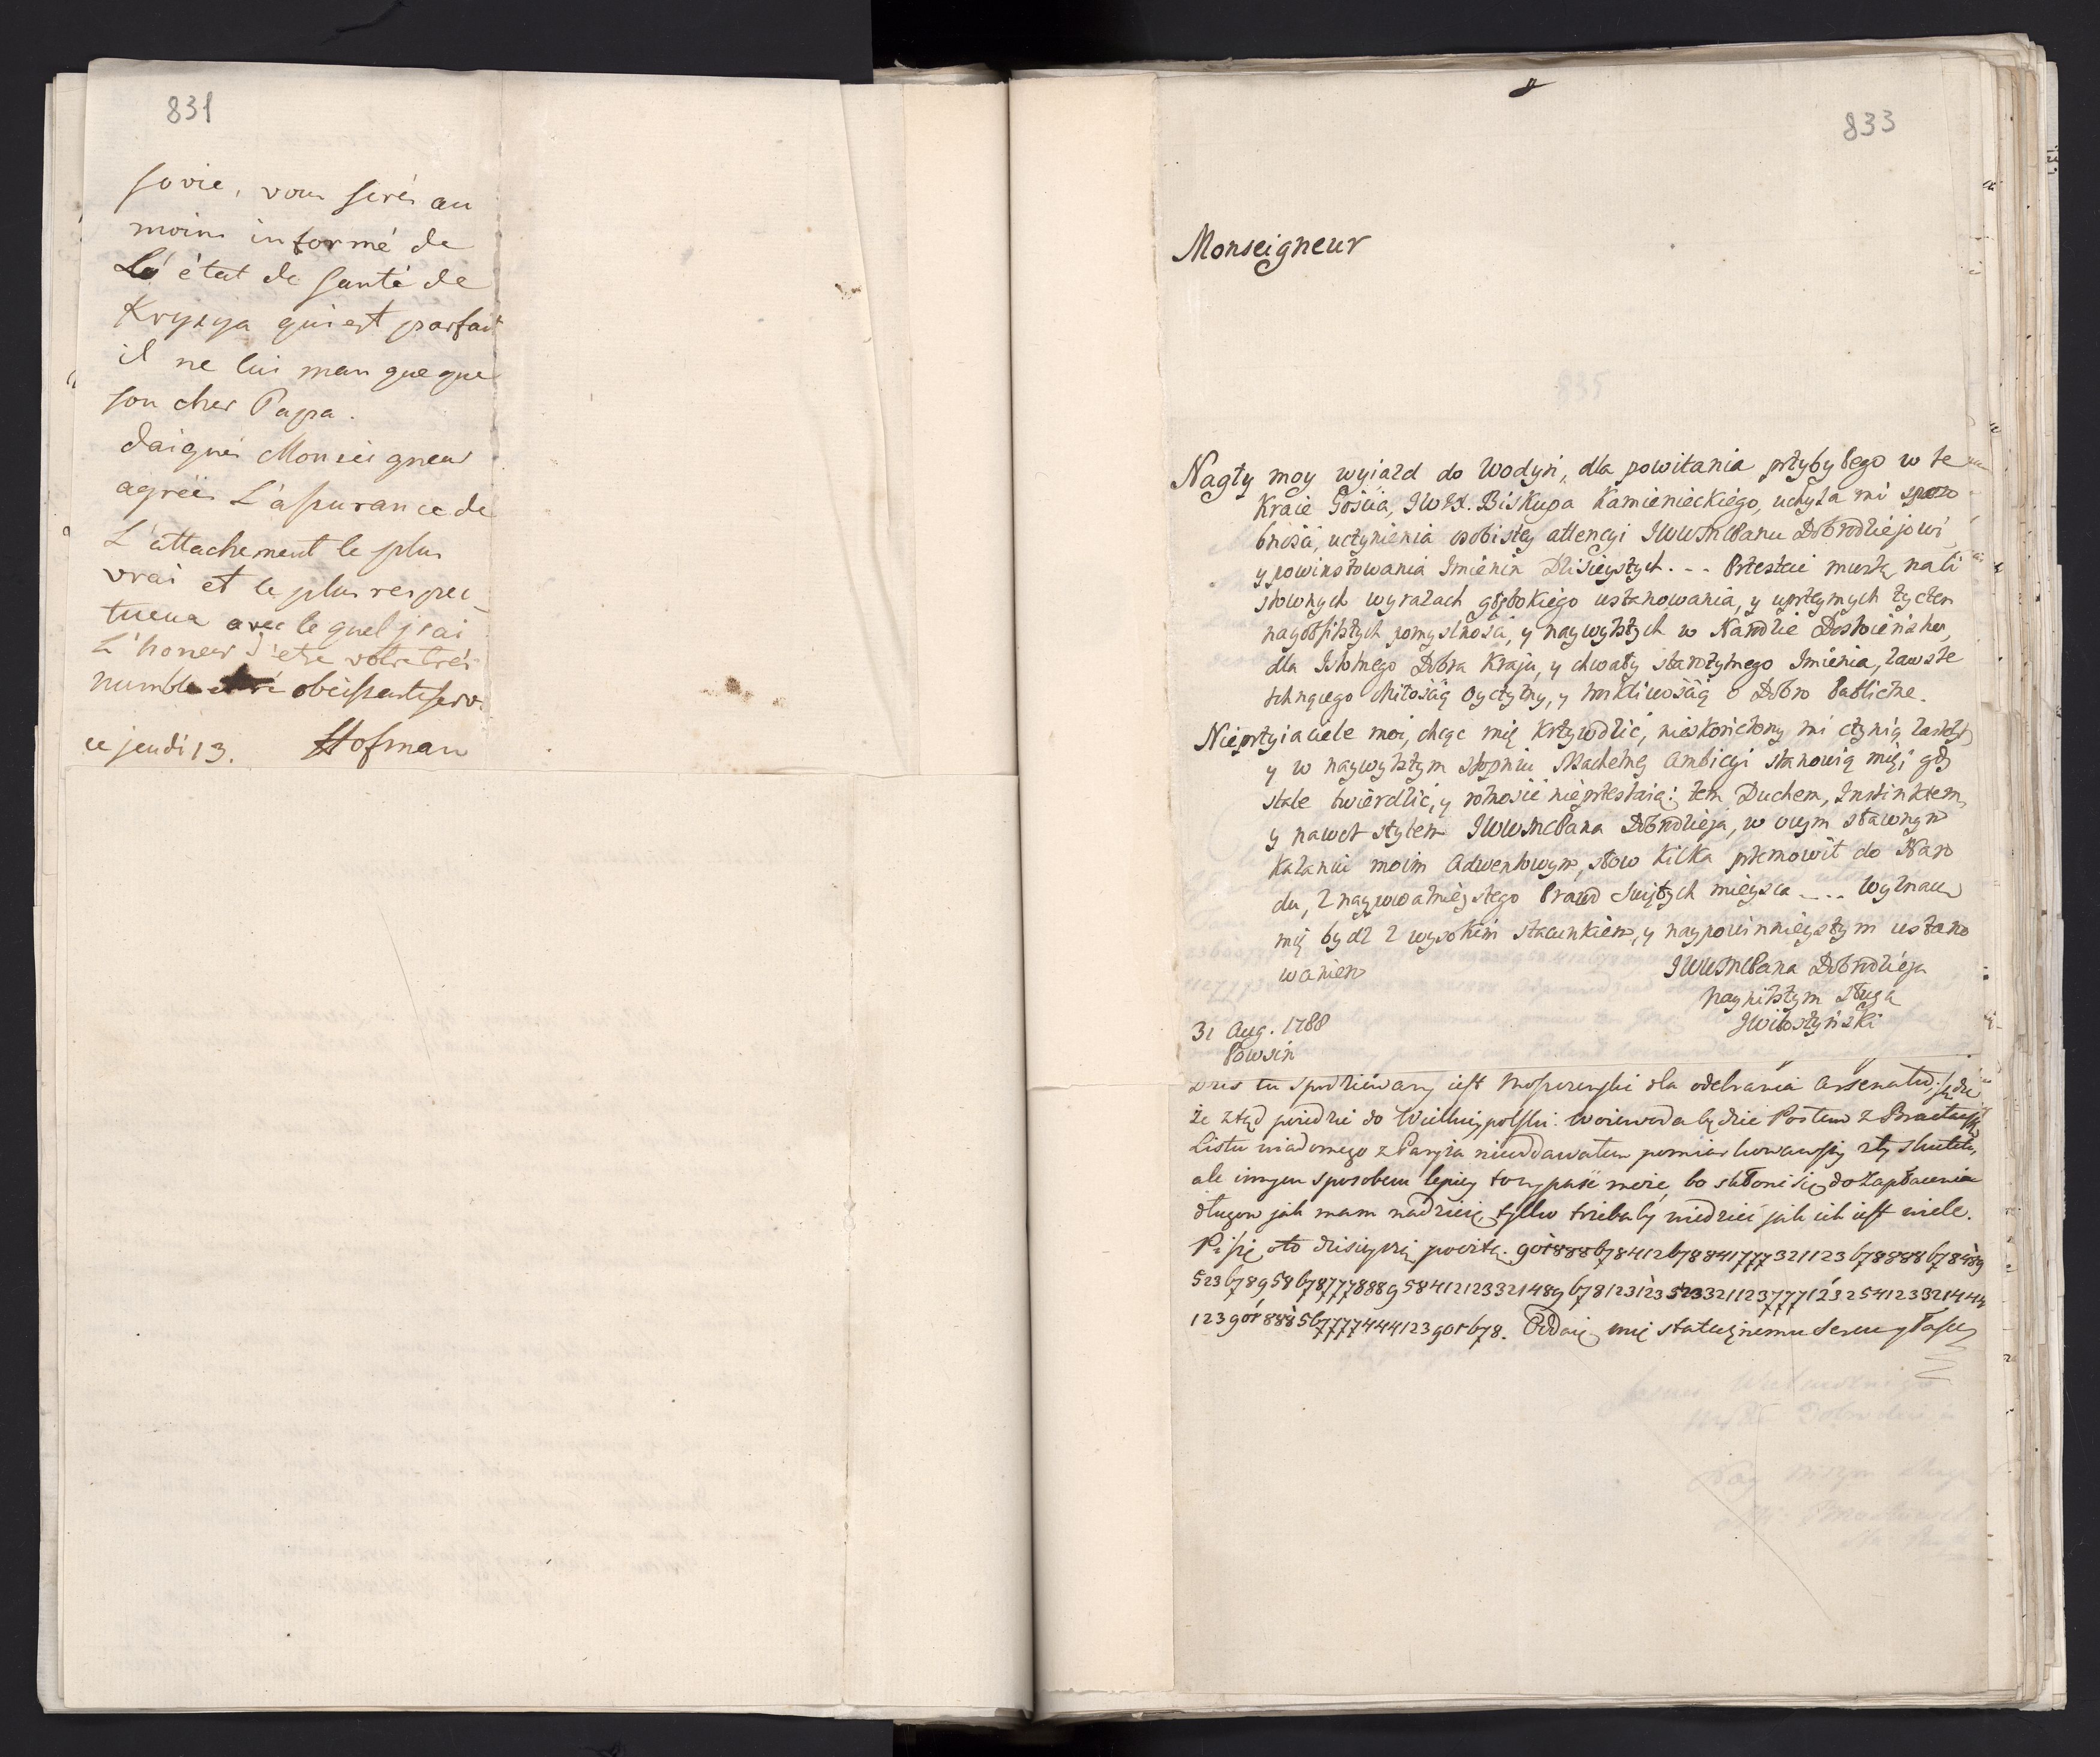 831
sovie, vous serés au
moins informé de
L' état de santé de
Kryzya qui est parfait
il ne lui manque que
son cher Papa.
daignés Monseigneur
agréés L'assurance de
L'attachement le plus
vrai et le plus respec
tueux avec le quel j'ai
L'honeur d'etre votre trés
humble obéissante serv.
ce jeudi 13. Hofman
833
Monseigneur
Nagły moy wyiazd do Wodyń, dla powitania przybyłego w te
Kraie Gościa, JWX. Biskupa Kamienieckiégo, uchyla mi sposo
bność, uczynienia osobistey attencyi JWWMPanu Dobrodziejowi
y powinszowania Imienin Dzisieyszych. -- Przestać muszę na li
stownych wyrazach głębokiégo uszanowania, y uprzeymych życzen
nayobfitszych pomyślności, y naywyższych w Narodzie Dostoieństw,
dla Istotnego Dobra Kraju, y chwały starożytnego Imienia, zawsze
tchnącego Miłością Oyczyzny, y troskliwością o Dobro Publiczne.
Nieprzyiaciele moi, chcąc mię krzywdzić, nieskończony mi czynią zaszczyt
y w naywyższym stopniu Szachetney Ambicyi stanowią mię; gdy
stale twierdzić, y roznosić nieprzestaią: żem Duchem, Instinktem,
y nawet stylem JWWMPana Dobrodzieja, w owym sławnym
Kazaniu moim Adwentowym, słow Kilka przemowił do Naro
du, z naypoważnieyszego Prawd Swiętych mieysca --- Wyznaw
mię bydź z wysokim szacunkiem, y naypowinnieyszym uszano
waniem
JWWMPana Dobrodzieja
Nayniższym Sługą
JWitoszyński
31 Aug. 1788
Powsin
Dziś tu spodziéwany iest dla odebrania Arsenału; sądzę
że ztąd poiedzie do Wielkiey polski. Woiewoda będzie Posłem z
Listu wiadomego z Paryża nieoddawałem
ale innym sposobem lepiey może, bo skłoni się do zapłacenia
długow jak mam nadzieię, tylko trzebaby wiedzieć jak ich iest wiele.
Piszę oto dzisieyszą pocztą. gor888b78412b78841777321123b78888b7848g
523b78g58b78777888g5841212332148gb7812312352332112377712325412332144
123gor8885b7777444123gorb78. Oddaię mię statecznemu Sercu y Łasce